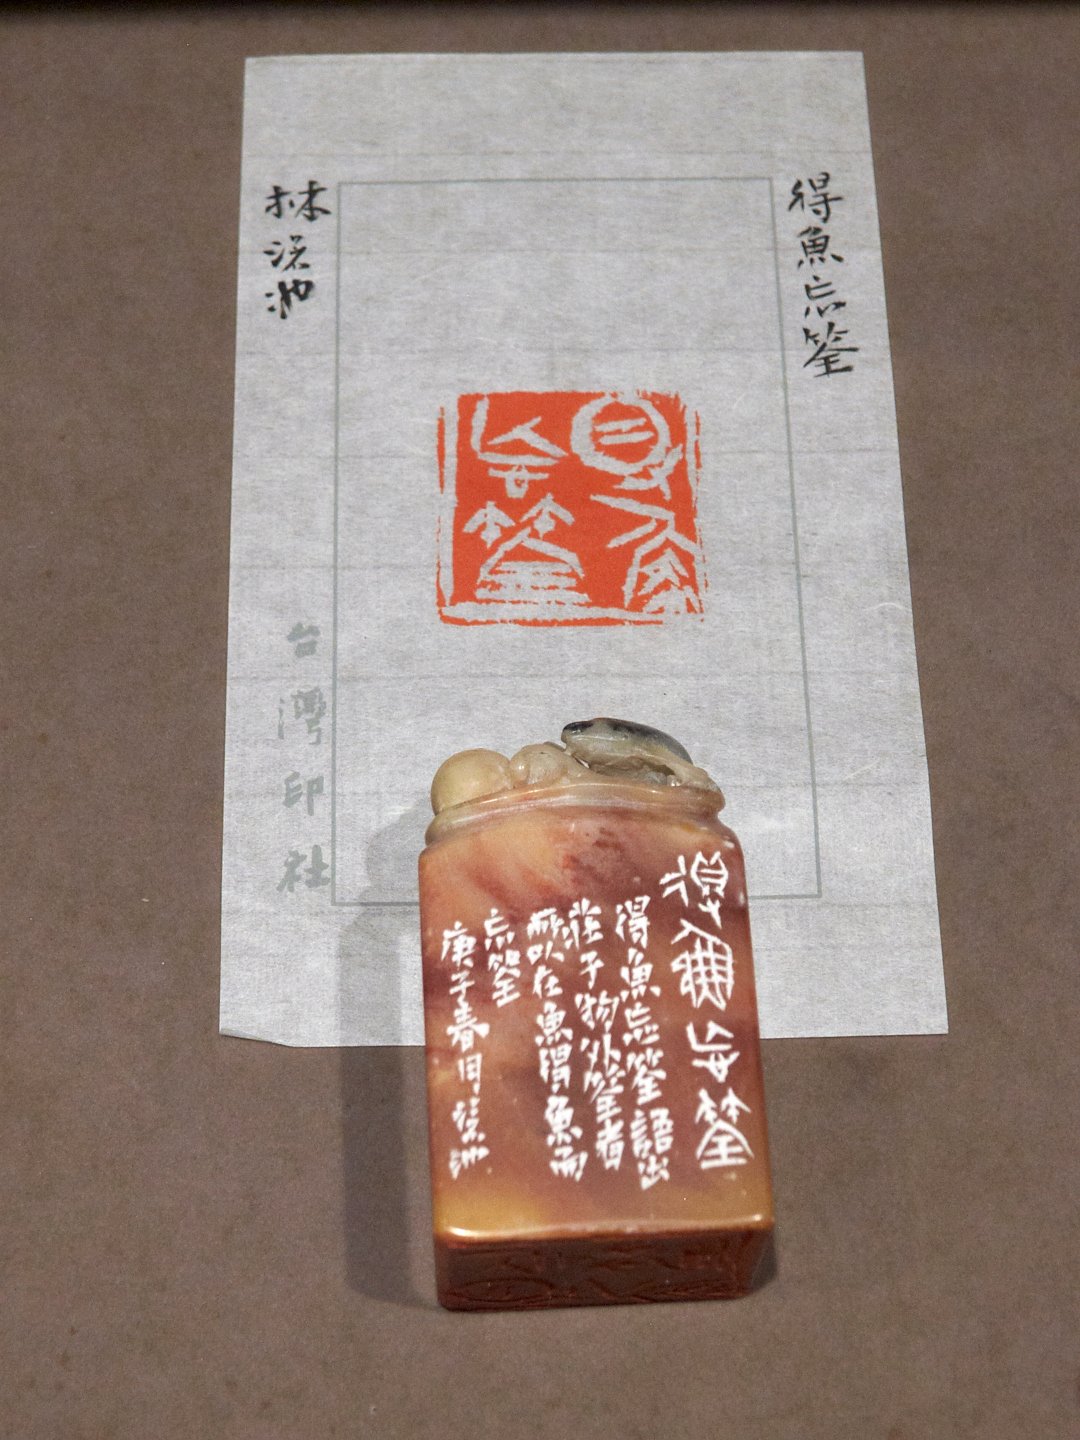 得魚忘筌
林滄池
台灣印社
得魚忘筌
得魚忘筌
得魚忘筌語出
莊子物外筌者
所以在魚得魚而
忘筌
庚子春月滄池